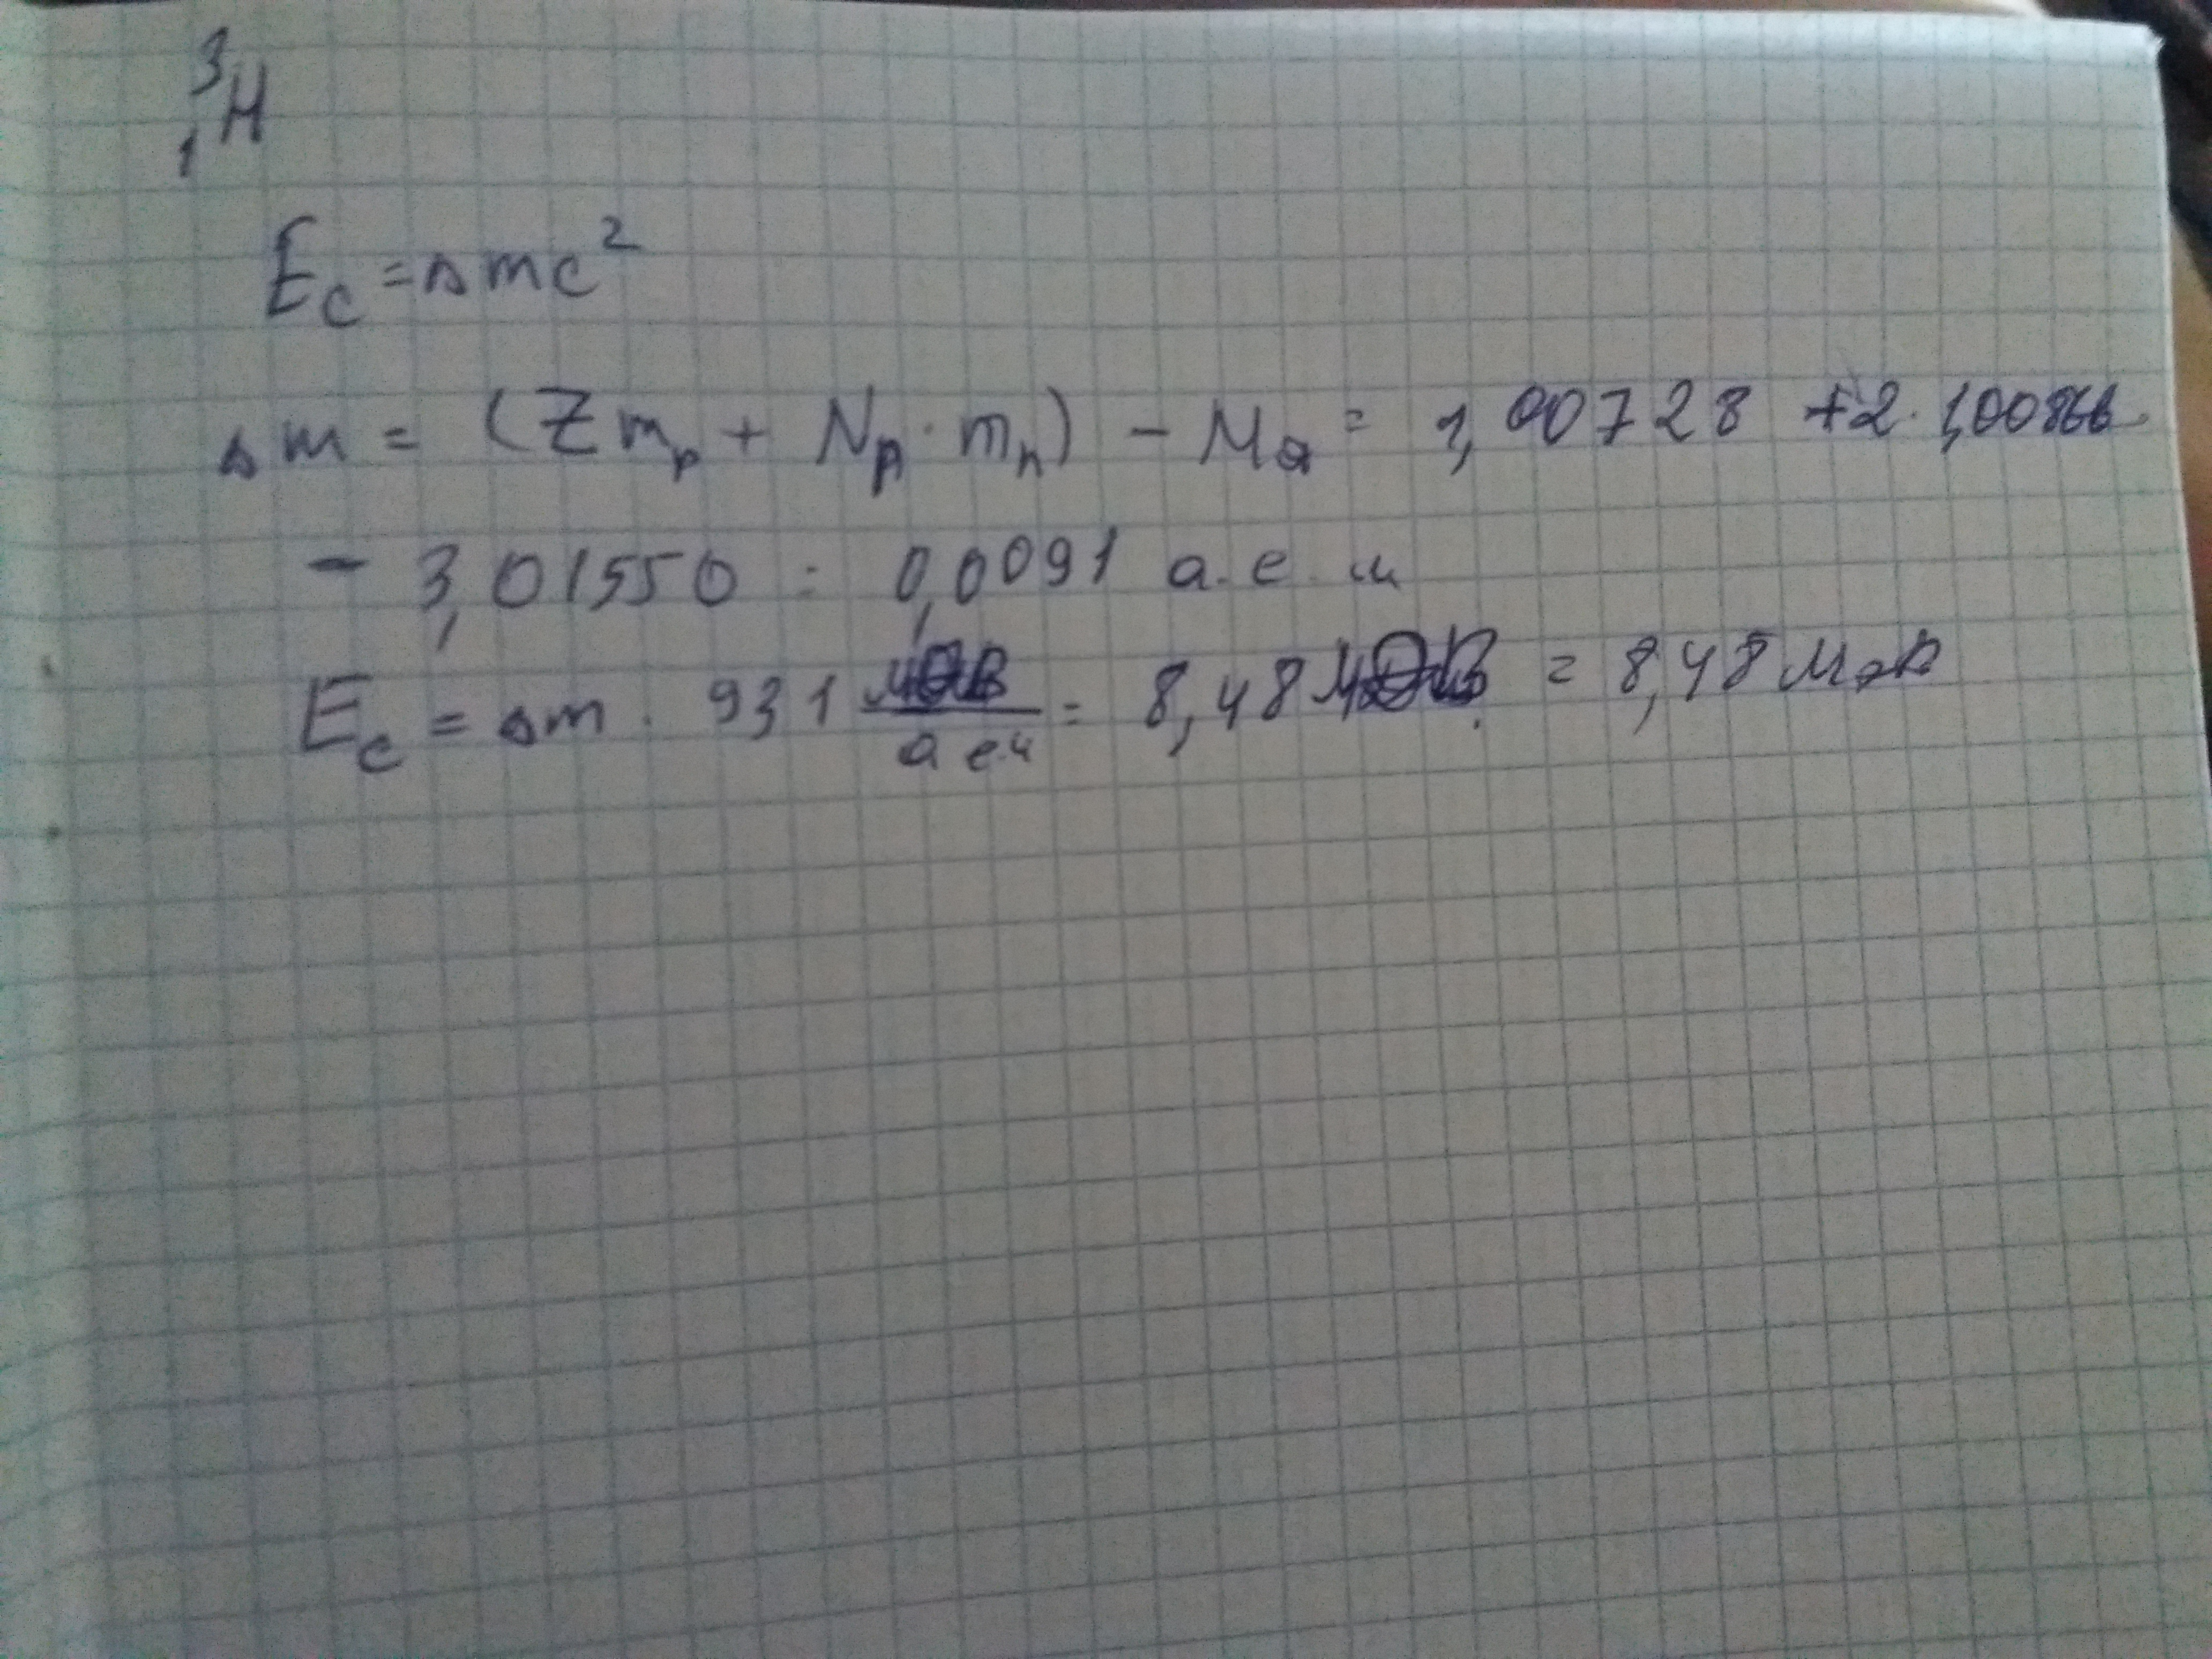 ³₁H
Eс = Δmc²
Δm = (Zmp + Nn · mn) − Mя = 1,00728 + 2 · 1,00866
− 3,01550 = 0,0091 а.е.м
Eс = Δm · 931 МэВ/а.е.м = 8,48 МэВ = 8,48 Мэв